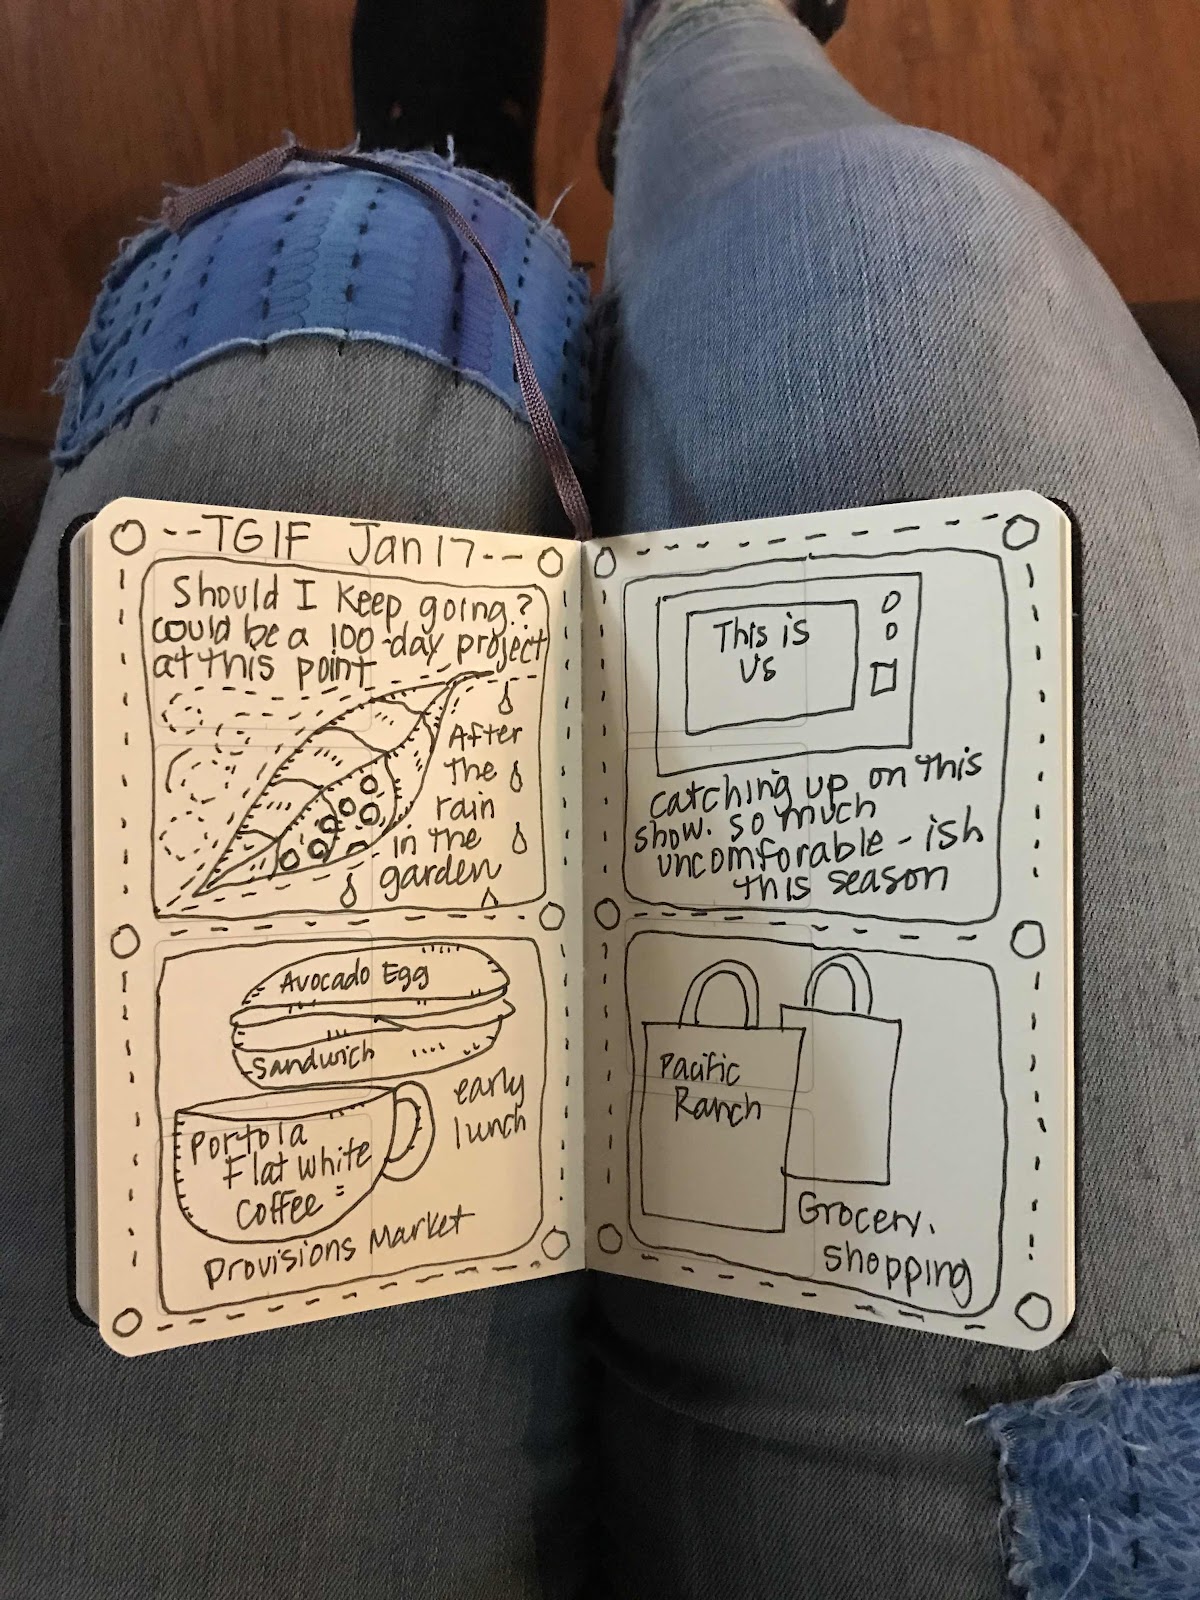 --TGIF Jan 17--
Should I Keep going?
could be a 100-day project
at this point
After
the
rain
in the
garden
Avocado Egg
Sandwich
early
lunch
Portola
Flat white
coffee
Provisions Market
This is
Us
catching up on this
show. so much
uncomforable-ish
this season
Pacific
Ranch
Grocery.
shopping